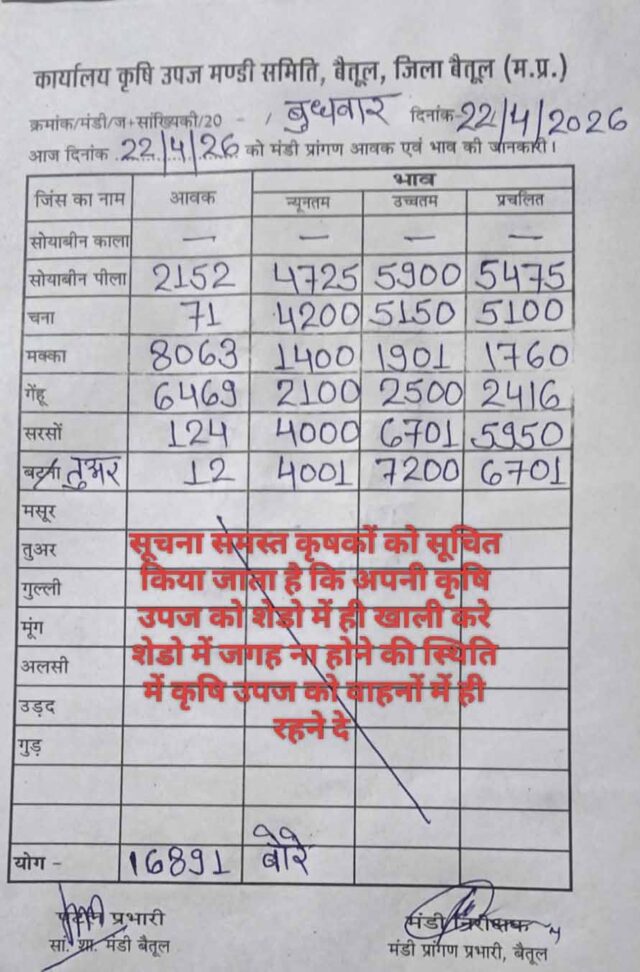 कार्यालय कृषि उपज मण्डी समिति, बैतूल, जिला बैतूल (म.प्र.)
क्रमांक/मंडी/ज+सांख्यिकी/20 - / बुधवार दिनांक-22/4/2026
आज दिनांक 22/4/26 को मंडी प्रांगण आवक एवं भाव की जानकारी।
जिंस का नाम आवक भाव
न्यूनतम उच्चतम प्रचलित
सोयाबीन काला — — — —
सोयाबीन पीला 2152 4725 5900 5475
चना 71 4200 5150 5100
मक्का 8063 1400 1901 1760
गेंहू 6469 2100 2500 2416
सरसों 124 4000 6701 5950
तुअर 12 4001 7200 6701
मसूर
तुअर
गुल्ली
मूंग
अलसी
उड़द
गुड़
सूचना समस्त कृषकों को सूचित
किया जाता है कि अपनी कृषि
उपज को शेडो में ही खाली करे
शेडो में जगह ना होने की स्थिति
में कृषि उपज को वाहनों में ही
रहने दे
योग - 16891 बोरे
प्रभारी
सां. शा. मंडी बैतूल
मंडी निरीक्षक
मंडी प्रांगण प्रभारी, बैतूल